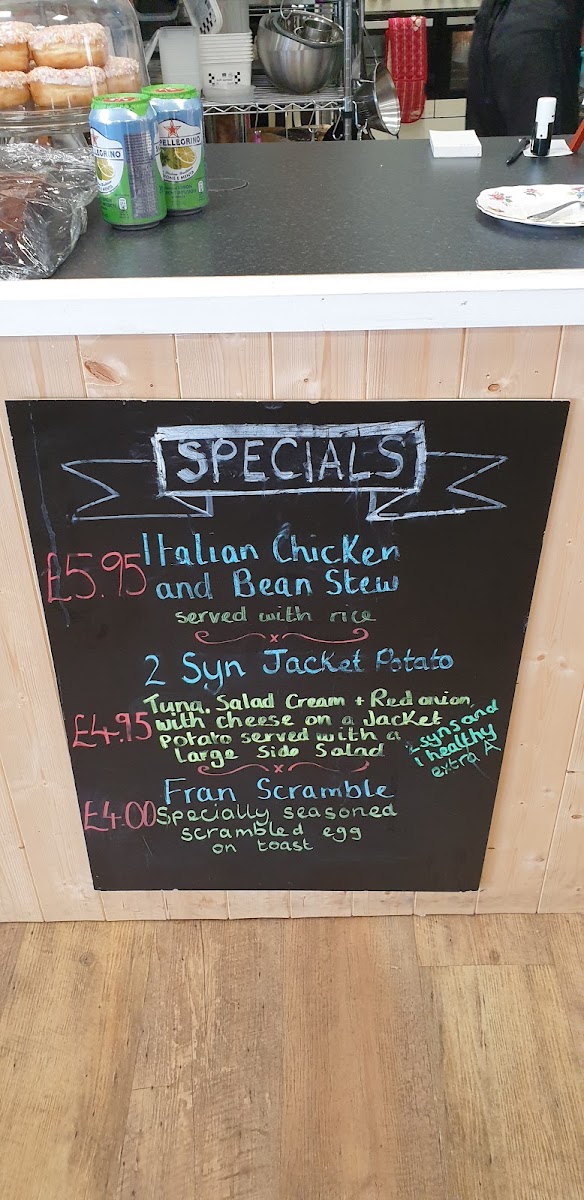 PELLEGRINO
PELLEGRINO
SPECIALS
£5.95
Italian Chicken
and Bean Stew
served with rice
x
2 Syn Jacket Potato
£4.95
Tuna. Salad Cream + Red onion
with cheese on a Jacket
Potato served with a
Large Side Salad
2 syns and
1 healthy
extra A
x
Fran Scramble
£4.00
Specially seasoned
scrambled egg
on toast